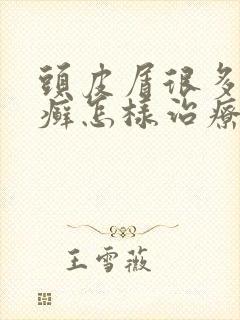 頭皮屑很多
癬怎樣治療
王雪薇